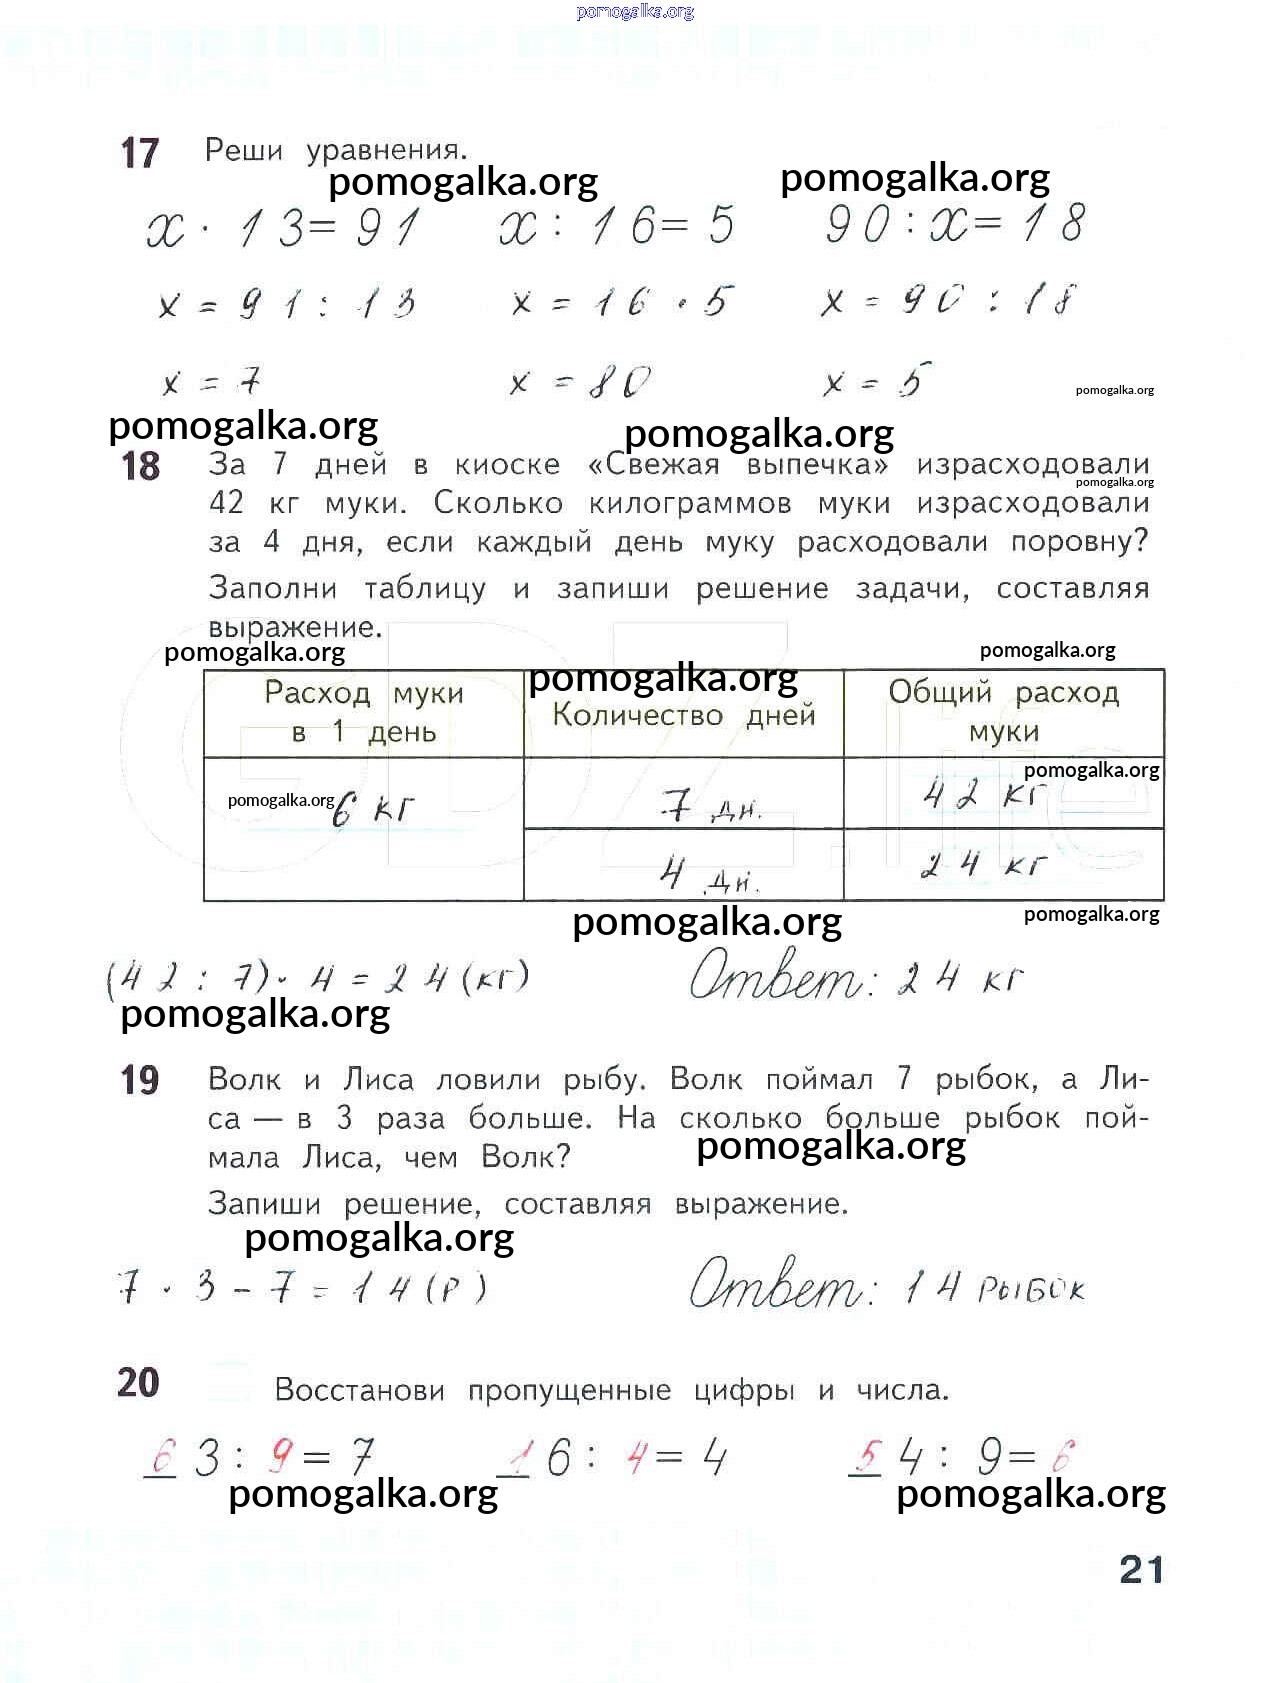 pomogalka.org
17 Реши уравнения.
pomogalka.org pomogalka.org
x · 13=91 x : 16=5 90:x=18
x = 91 : 13 x = 16 · 5 x = 90 : 18
x = 7 x = 80 x = 5
pomogalka.org
pomogalka.org pomogalka.org
18 За 7 дней в киоске «Свежая выпечка» израсходовали
pomogalka.org
42 кг муки. Сколько килограммов муки израсходовали
за 4 дня, если каждый день муку расходовали поровну?
Заполни таблицу и запиши решение задачи, составляя
выражение.
pomogalka.org pomogalka.org pomogalka.org
Расход муки в 1 день
Количество дней
Общий расход муки
pomogalka.org
pomogalka.org 6 кг 7 дн. 42 кг
4 дн. 24 кг
pomogalka.org pomogalka.org
(42 : 7) · 4 = 24 (кг) Ответ: 24 кг
pomogalka.org
19 Волк и Лиса ловили рыбу. Волк поймал 7 рыбок, а Ли-
са — в 3 раза больше. На сколько больше рыбок пой-
мала Лиса, чем Волк?
pomogalka.org
Запиши решение, составляя выражение.
pomogalka.org
7 · 3 - 7 = 14 (р) Ответ: 14 рыбок
20 Восстанови пропущенные цифры и числа.
63 : 9 = 7 16 : 4 = 4 54 : 9 = 6
pomogalka.org pomogalka.org
21
GDZ.life